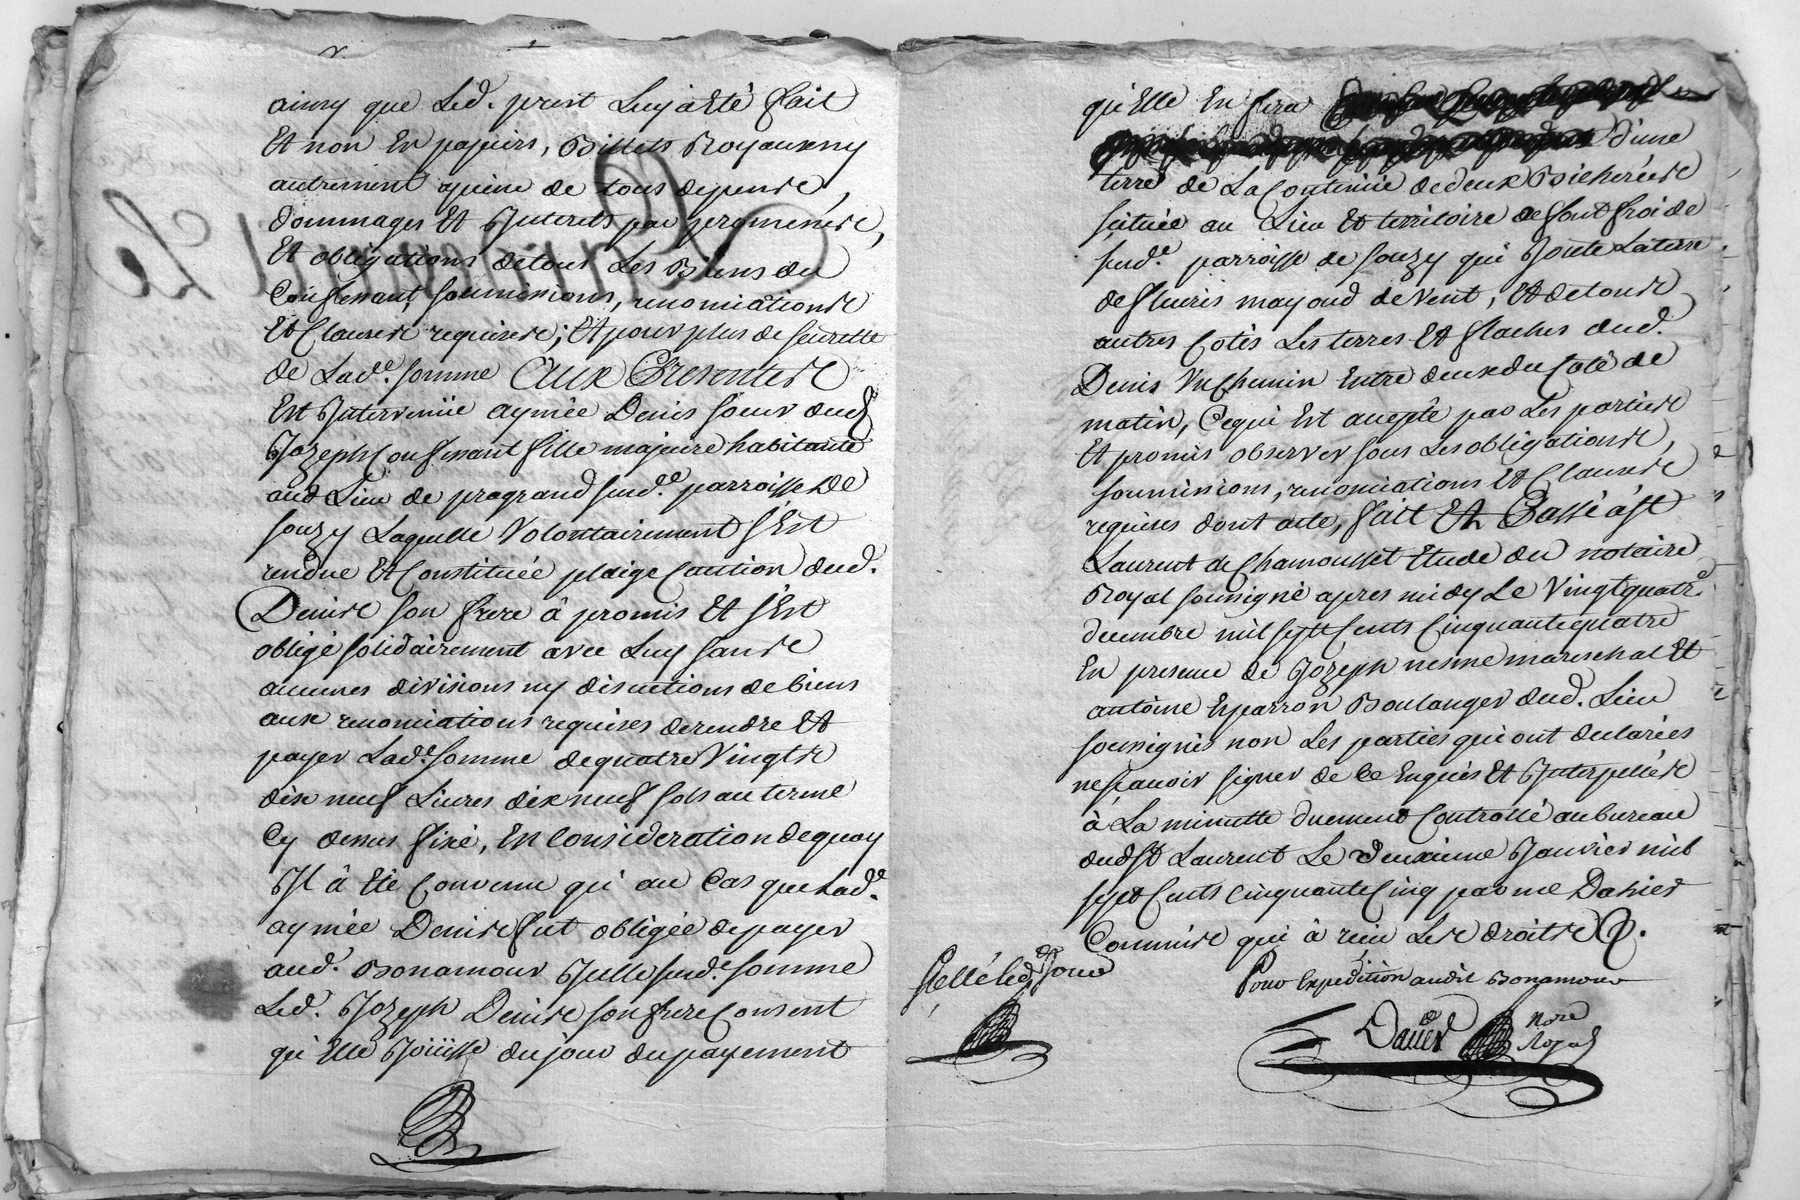 ainsy que Led. prest Luy à Eté fait
Et non En papiers, Billets Royaux ny
autrement apeine de tous depense,
dommages Et Interets par
Et obligations de tous Les Biens du
Confessant, soumissions, renonciations
Et Clauses requises; Et pour plus de seurette
de Lad.e somme Aux Presentes
Est Intervenüe aymée Denis soeur dud
Jozeph Confessant fille majeure habitante
aud Lieu de pragrand sud.e parroisse De
souzy Laquelle Volontairement s'Est
rendue Et Constituée plaige Caution dud.
Denis son frere à promis Et s'Est
obligé solidairement avec Luy sans
aucunes divisions ny discutions de biens
aux renonciations requises de rendre Et
payer Lad.e somme de quatre Vingts
dix neuf Livres dix neuf sols au terme
Cy dessus fixé, En Consideration de quoy
Il à Eté Convenu qu'au Cas que Lad.e
aymée Denis fut obligée de payer
aud. Bonamour Icelle sud.e somme
Led. Jozeph Denis son frere Consent
qu'Elle Joüisse du jour du payement
qu'Elle En fera
d'une
terre de La Contenüe de deux Bicherées
scituée au Lieu Et territoire de font froide
sud.e parroisse de souzy qui Joute La terre
de fleuris mayoud de Vent, Et de tous
autres Cotés Les terres Et flaches dud.
Denis Un Chemin Entre deux du Coté de
matin, Ce qui Est accepté par Les parties
Et promis observer sous Les obligations,
soumissions, renonciations Et Clauses
requises dont acte, fait Et Passé à St
Laurent de Chamousset Etude du notaire
Royal soussigné apres midy Le Vingt quatre
decembre mil sept Cents Cinquante quatre
En presence de Jozeph nesme mareschal Et
antoine Esparron Boulanger dud. Lieu
soussignés non Les parties qui ont declarées
ne sçavoir signer de Ce Enquis Et Interpellées
à La minutte duement Controllé au bureau
dud St Laurent Le deuxieme Janvier mil
sept Cents cinquante Cinq par me Danier
Commise qui à reçu Les droits
Scellé led. jour
Pour Expedition audit Bonamour
Danier Nore
Royal